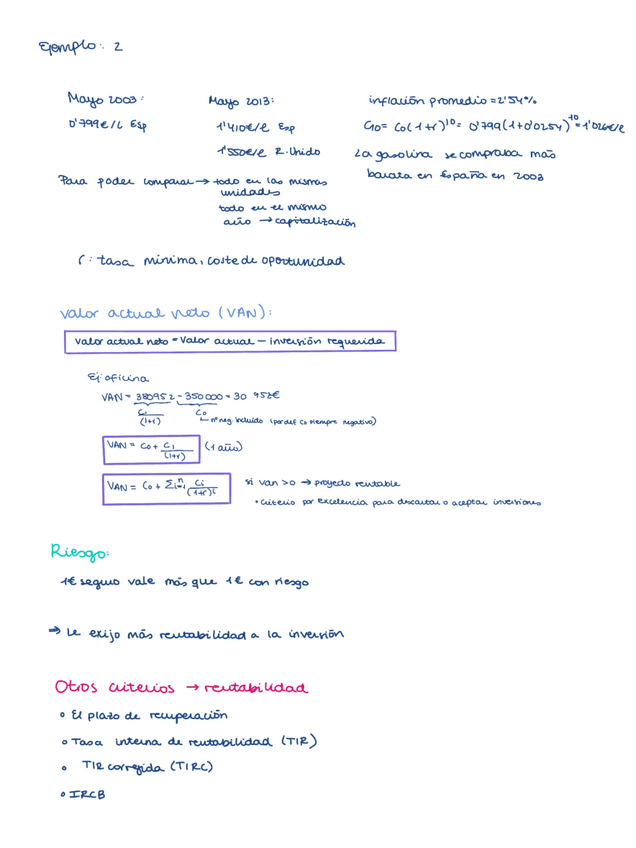 Ejemplo: 2
Mayo 2003:
0'799€/L Esp
Mayo 2013:
1'410€/l Esp
1'550€/l R.Unido
inflación promedio = 2'54%
C10 = C0(1+r)^10 = 0'799(1+0'0254)^10 = 1'026€/l
La gasolina se compraba más
barata en España en 2003
Para poder comparar → todo en las mismas
unidades
todo en el mismo
año → capitalización
r: tasa mínima, coste de oportunidad
Valor actual neto (VAN):
Valor actual neto = Valor actual - inversión requerida
Ej: oficina
VAN = 380952 - 350000 = 30 952€
C1/(1+r)
C0
nº neg. incluido (por def C0 siempre negativo)
VAN = C0 + C1/(1+r) (1 año)
VAN = C0 + Σi=1^n Ci/(1+r)^i
si van >0 → proyecto rentable
• Criterio por excelencia para descartar o aceptar inversiones
Riesgo:
1€ seguro vale más que 1€ con riesgo
⇒ Le exijo más rentabilidad a la inversión
Otros criterios → rentabilidad
• El plazo de recuperación
• Tasa interna de rentabilidad (TIR)
• TIR corregida (TIRC)
• IRCB